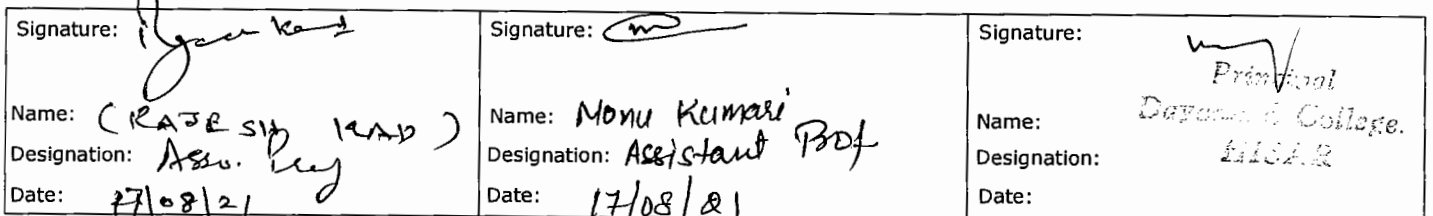 Signature:
Name: (RAJESH KAD)
Designation: Asso.
Date: 17/08/21
Signature:
Name: Monu Kumari
Designation: Assistant Prof
Date: 17/08/21
Signature:
Principal
Dayanand College.
HISAR
Name:
Designation:
Date: